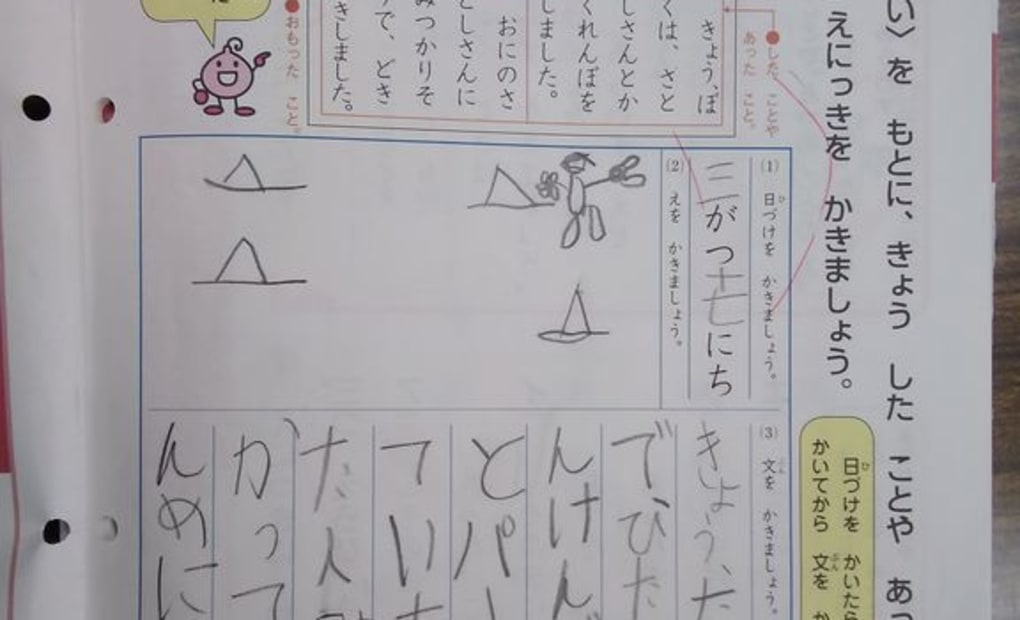 い〉を もとに、きょう した ことや あっ
えにっきを かきましょう。
日づけを かいたら
かいてから 文を か
●した ことや
あった こと。
きょう、ぼ
くは、さと
しさんとか
くれんぼを
しました。
おにのさ
としさんに
みつかりそ
うで、どき
きしました。
●おもった こと。
(1) 日づけを かきましょう。
三がつ十七にち
(2) えを かきましょう。
(3) 文を かきましょう。
きょう、た
でひた
んけん
とパー
てい
だ人
かって
んめに